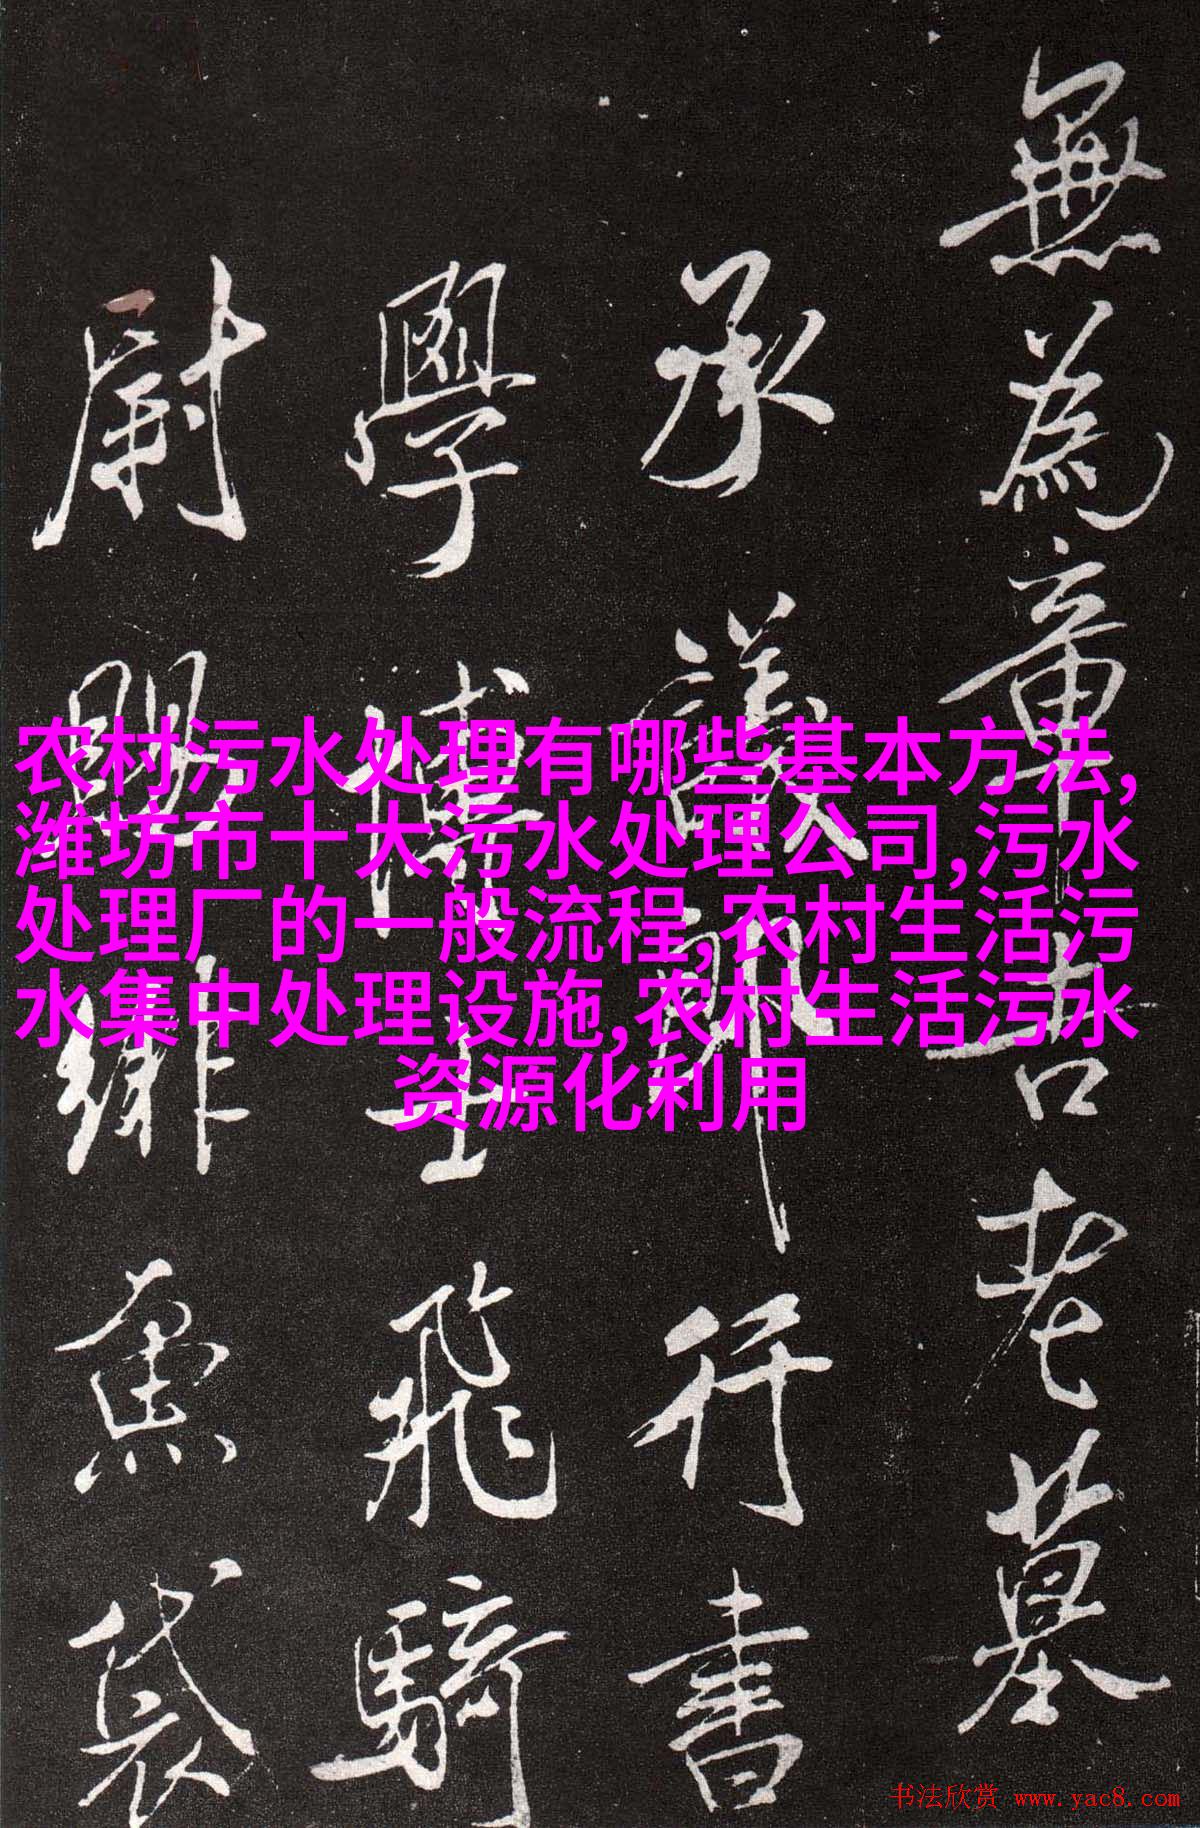 無為章吉老墓
承議郎行書
學博士飛騎
尉賜緋魚袋
农村污水处理有哪些基本方法,
潍坊市十大污水处理公司,污水
处理厂的一般流程,农村生活污
水集中处理设施,农村生活污水
资源化利用
书法欣赏 www.yac8.com